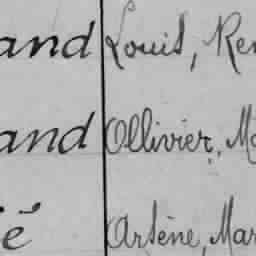 and Louis, Ren
and Ollivier, Ma
é Arsène, Mar